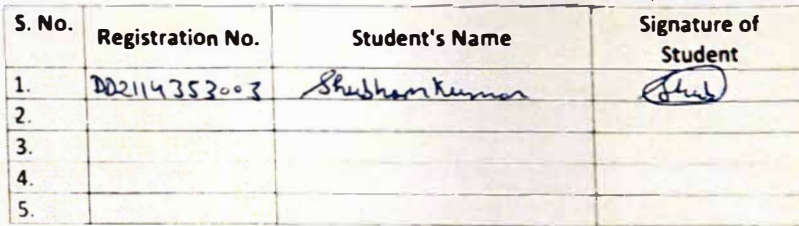 S. No. Registration No. Student's Name Signature of Student
1. DD2114353003 Shubham Kumar Shub
2.
3.
4.
5.